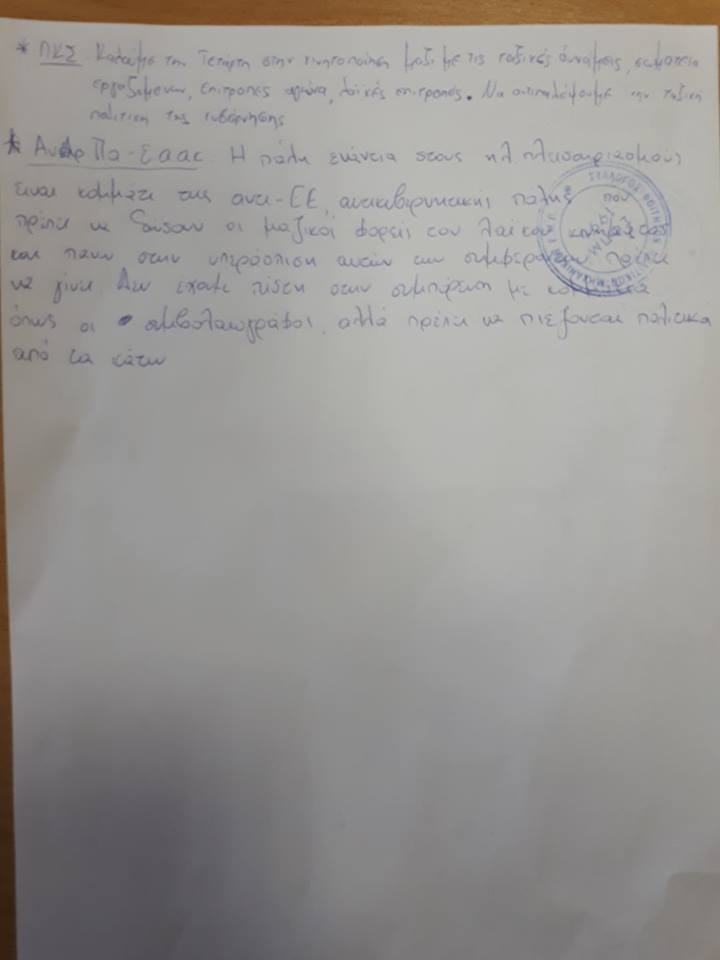 * ΠΚΣ Καλούμε την Τετάρτη στην κινητοποίηση μαζί με τις ταξικές δυνάμεις, σωματεία
εργαζομένων, επιτροπές αγώνα, λαϊκές επιτροπές. Να αντιπαλέψουμε την ταξική
πολιτική της κυβέρνησης
* ΑνΑρ Πα-Σαας Η πάλη ενάντια στους ηλ πλειστηριασμούς
είναι κομμάτι της αντι-ΕΕ, αντικυβερνητικής πάλης που
πρέπει να δώσουν οι μαζικοί φορείς του λαϊκού κινήματος
και πάνω στην υπεράσπιση αυτών των συμφερόντων πρέπει
να γίνει. Δεν έχουμε πίστη στην συμπόρευση με κομμάτια
όπως οι συμβολαιογράφοι, αλλά πρέπει να πιέζονται πολιτικά
από τα κάτω
ΣΥΛΛΟΓΟΣ ΦΟΙΤΗΤΩΝ
ΜΗΧΑΝΙΚΩΝ Ε.Μ.Π.